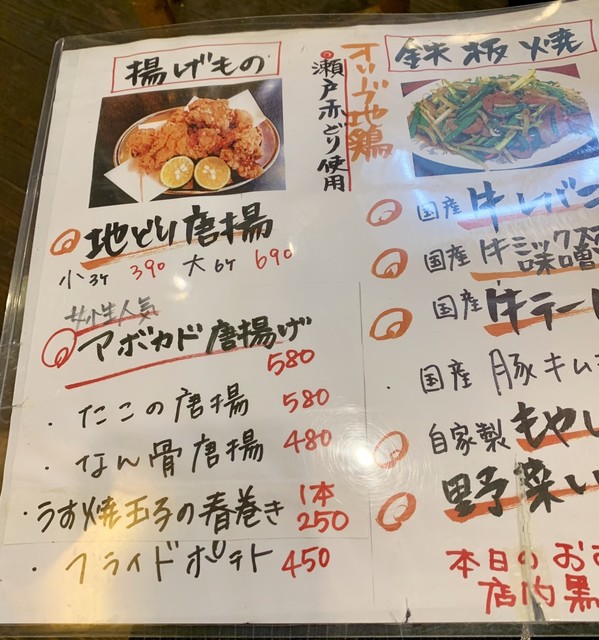 揚げもの
瀬戸赤どり使用
オリーブ地鶏
地どり唐揚
小3ケ 390 大6ケ 690
女性人気
アボカド唐揚げ
580
・たこの唐揚 580
・なん骨唐揚 480
・うす焼玉子の春巻き 1本 250
・フライドポテト 450
鉄板焼
国産 牛レバ
国産 牛ミックス
味噌
国産 牛テー
・国産 豚キム
自家製 もやし
野菜い
本日のお
店内黒